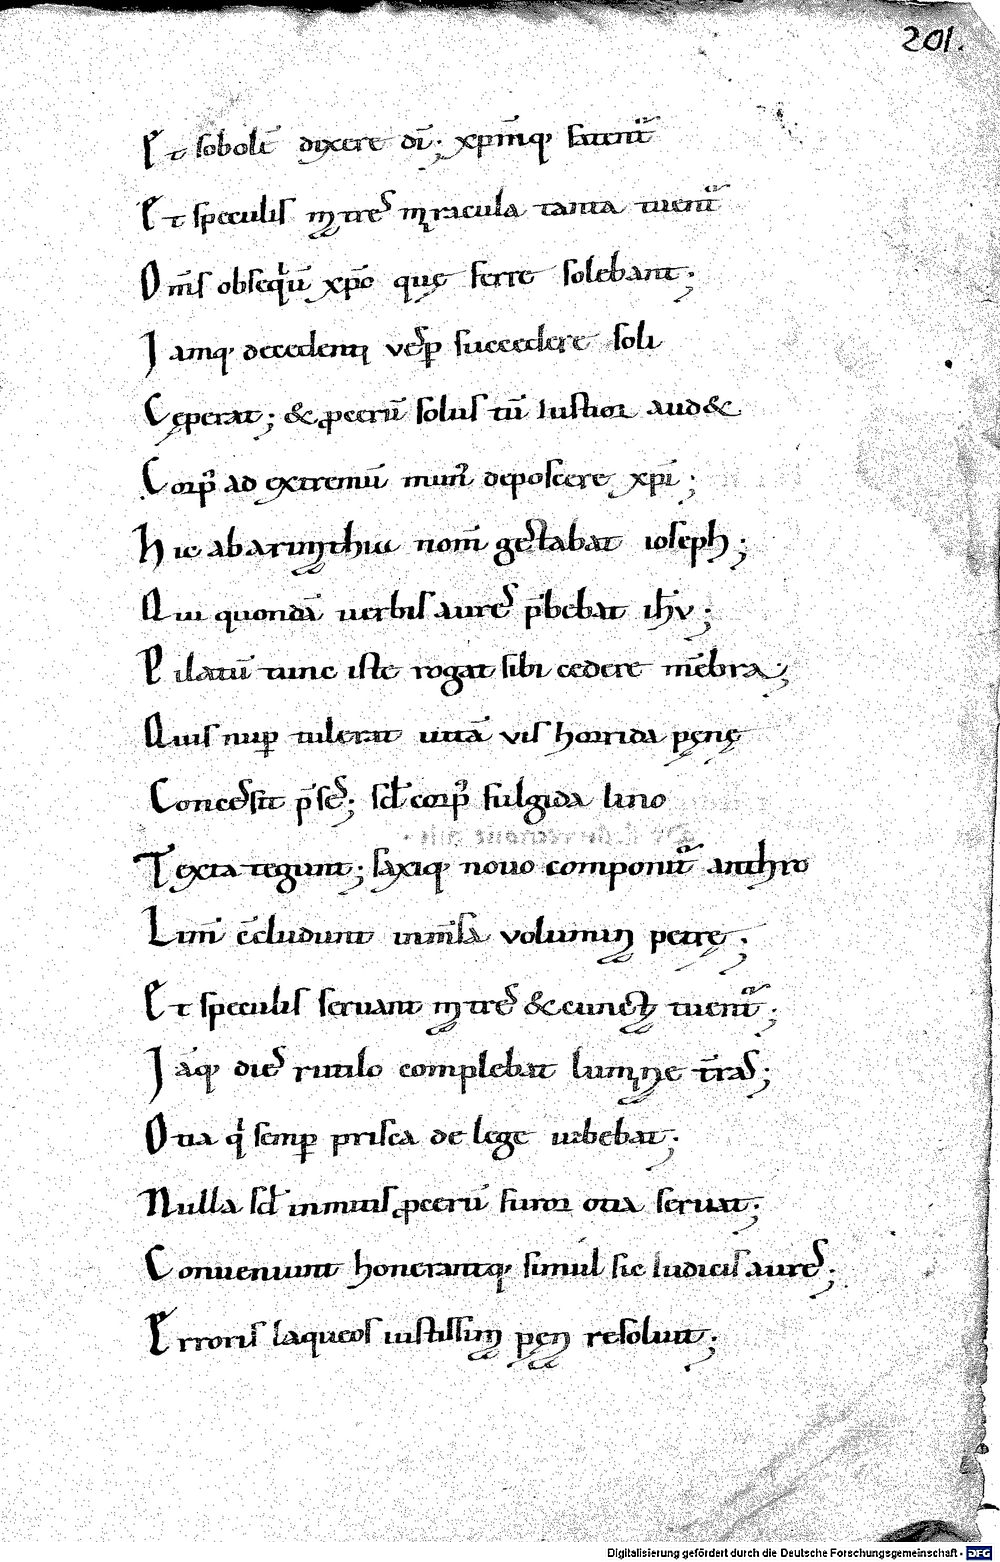 201.
Et sobolē dixere dī; xpmq; fatent̄
Et speculis mtres miracula tanta tuent̄
Om̄s obsequiū xpo quę ferre solebant;
Iamq; decedenti vesp succedere soli
Ceperat; & procerū solus tū iustior audet
Corp⁹ ad extremū mun⁹ deposcere xpi;
Hic ab arimathia nom̄ gestabat ioseph;
Qui quondā uerbis aures p̄bebat ihv;
Pilatū tunc iste rogat sibi cedere mēbra;
Quis nup tulerat uitā vis horrida pęnę
Concessit p̄ses; sed corp⁹ fulgida lino
Texta tegunt; saxiq; nouo componit̄ anthro
Lim̄ c̄cludunt inm̄sa volumin petrę;
Et speculis seruant mtres & cunctą tuent̄;
Iāq; dies rutilo complebat lumine t̄ras;
Otia q̄ semp prisca de lege iubebat;
Nulla sed inmitis procerū furor otia seruat;
Conueniunt honerantq; simul sic iudicis aures;
Erroris laqueos iustissim pęn resoluit;
Digitalisierung gefördert durch die Deutsche Forschungsgemeinschaft - DFG